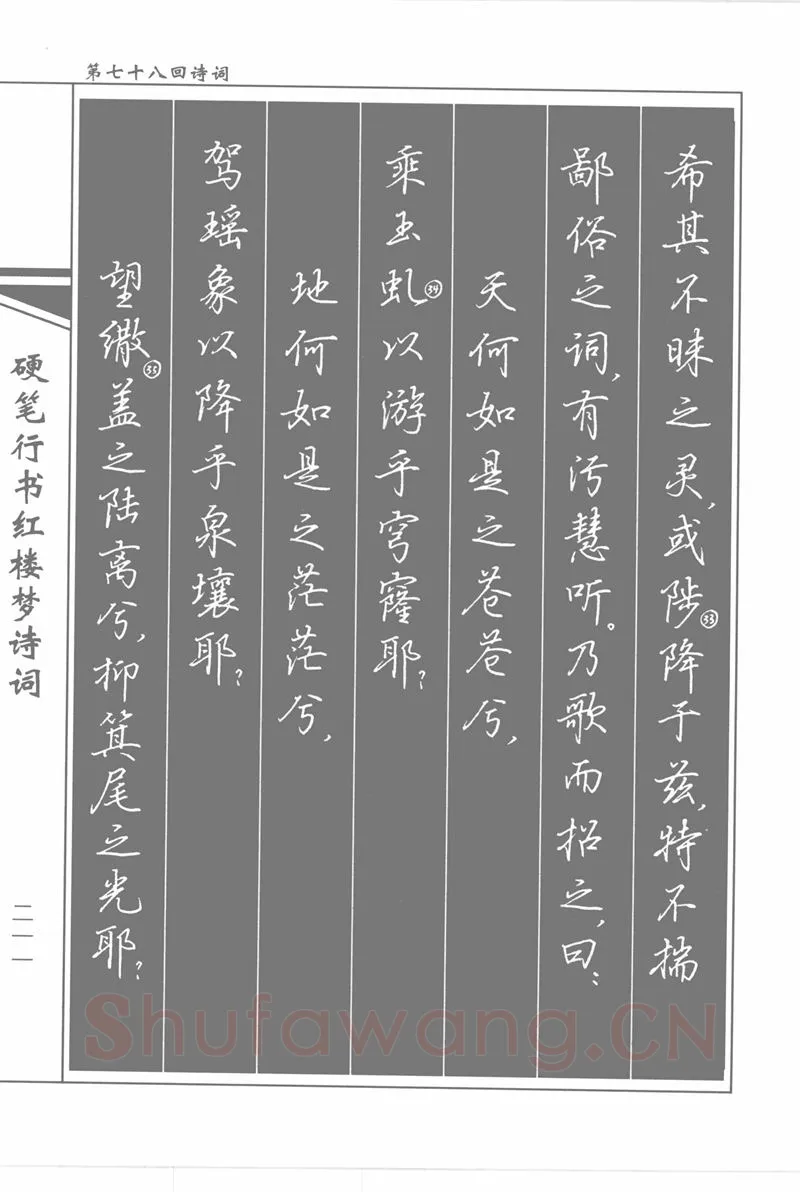 第七十八回诗词
希其不昧之灵,或陟㉝降于兹,特不揣
鄙俗之词,有污慧听。乃歌而招之,曰:
天何如是之苍苍兮,
乘玉虬㉞以游乎穹窿耶?
地何如是之茫茫兮,
驾瑶象以降乎泉壤耶?
望缴㉟盖之陆离兮,抑箕尾之光耶?
硬笔行书红楼梦诗词
二一一
Shufawang.CN